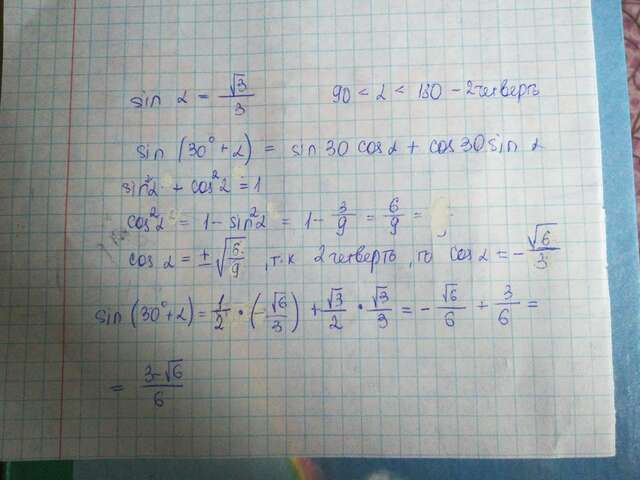 sin α = √3/3    90 < α < 180 – 2 четверть
sin (30° + α) = sin 30 cos α + cos 30 sin α
sin²α + cos²α = 1
cos²α = 1 – sin²α = 1 – 3/9 = 6/9 =
cos α = ±√(6/9), т.к 2 четверть, то cos α = – √6/3
sin (30° + α) = 1/2 • (– √6/3) + √3/2 • √3/3 = – √6/6 + 3/6 =
= (3-√6)/6